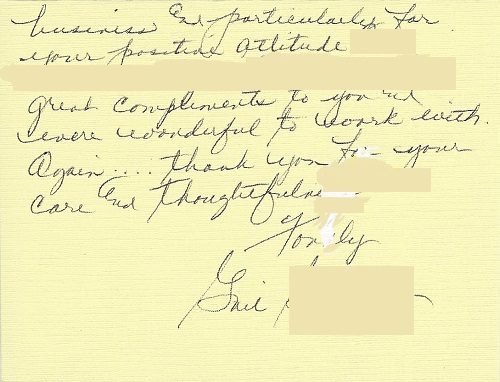 business and particularly for
your positive attitude
great compliments to you
were wonderful to work with.
Again.... thank you for your
care and thoughtfulness
Fondly
Gail